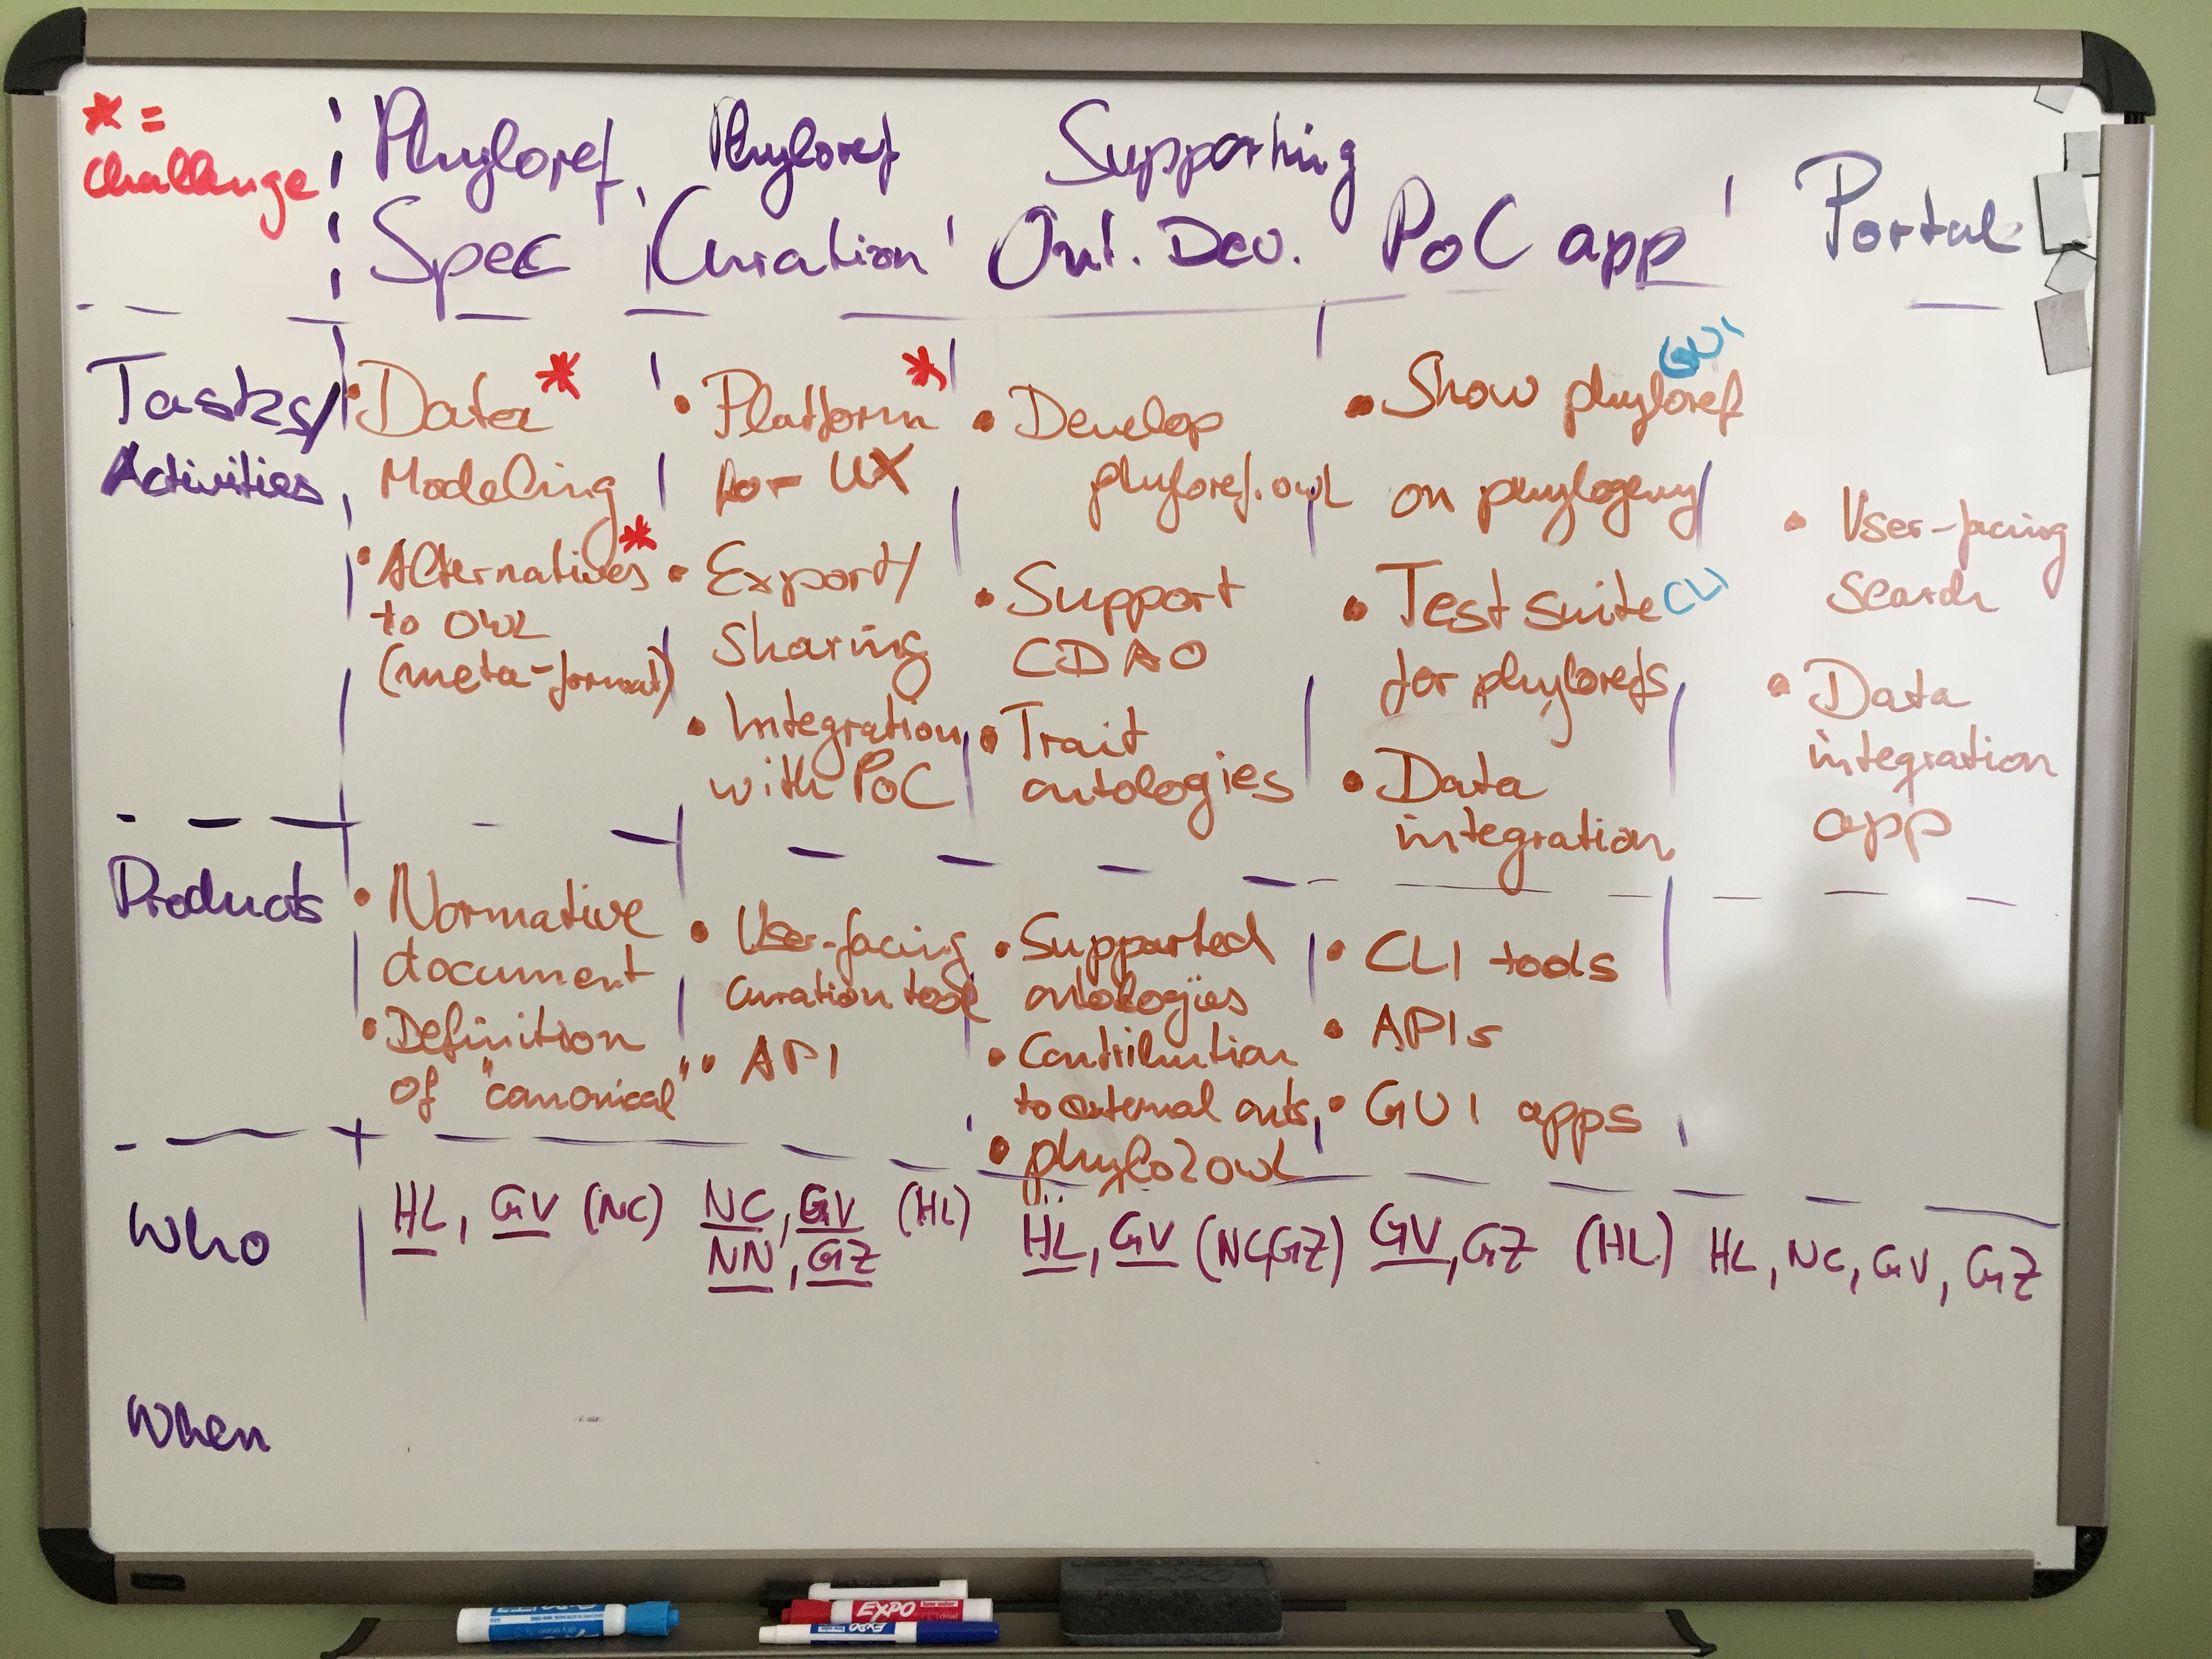 * =
challenge
Phyloref
Spec
Phyloref
Curation
Supporting
Ont. Dev.
PoC app
Portal
Tasks/
Activities
• Data *
Modeling
• Alternatives *
to OWL
(meta-format)
• Platform *
for UX
• Export/
sharing
• Integration
with PoC
• Develop
phyloref.owl
• Support
CDAO
• Trait
ontologies
• Show phyloref GUI
on phylogeny
• Test suite CLI
for phylorefs
• Data
integration
• User-facing
search
• Data
integration
app
Products
• Normative
document
• Definition
of "canonical"
• User-facing
curation tool
• API
• Supported
ontologies
• Contribution
to external onts.
• phylo2owl
• CLI tools
• APIs
• GUI apps
Who
HL, GV (NC)
NC, GV (HL)
NN, GZ
HL, GV (NC,GZ)
GV, GZ (HL)
HL, NC, GV, GZ
When
EXPO
EXPO